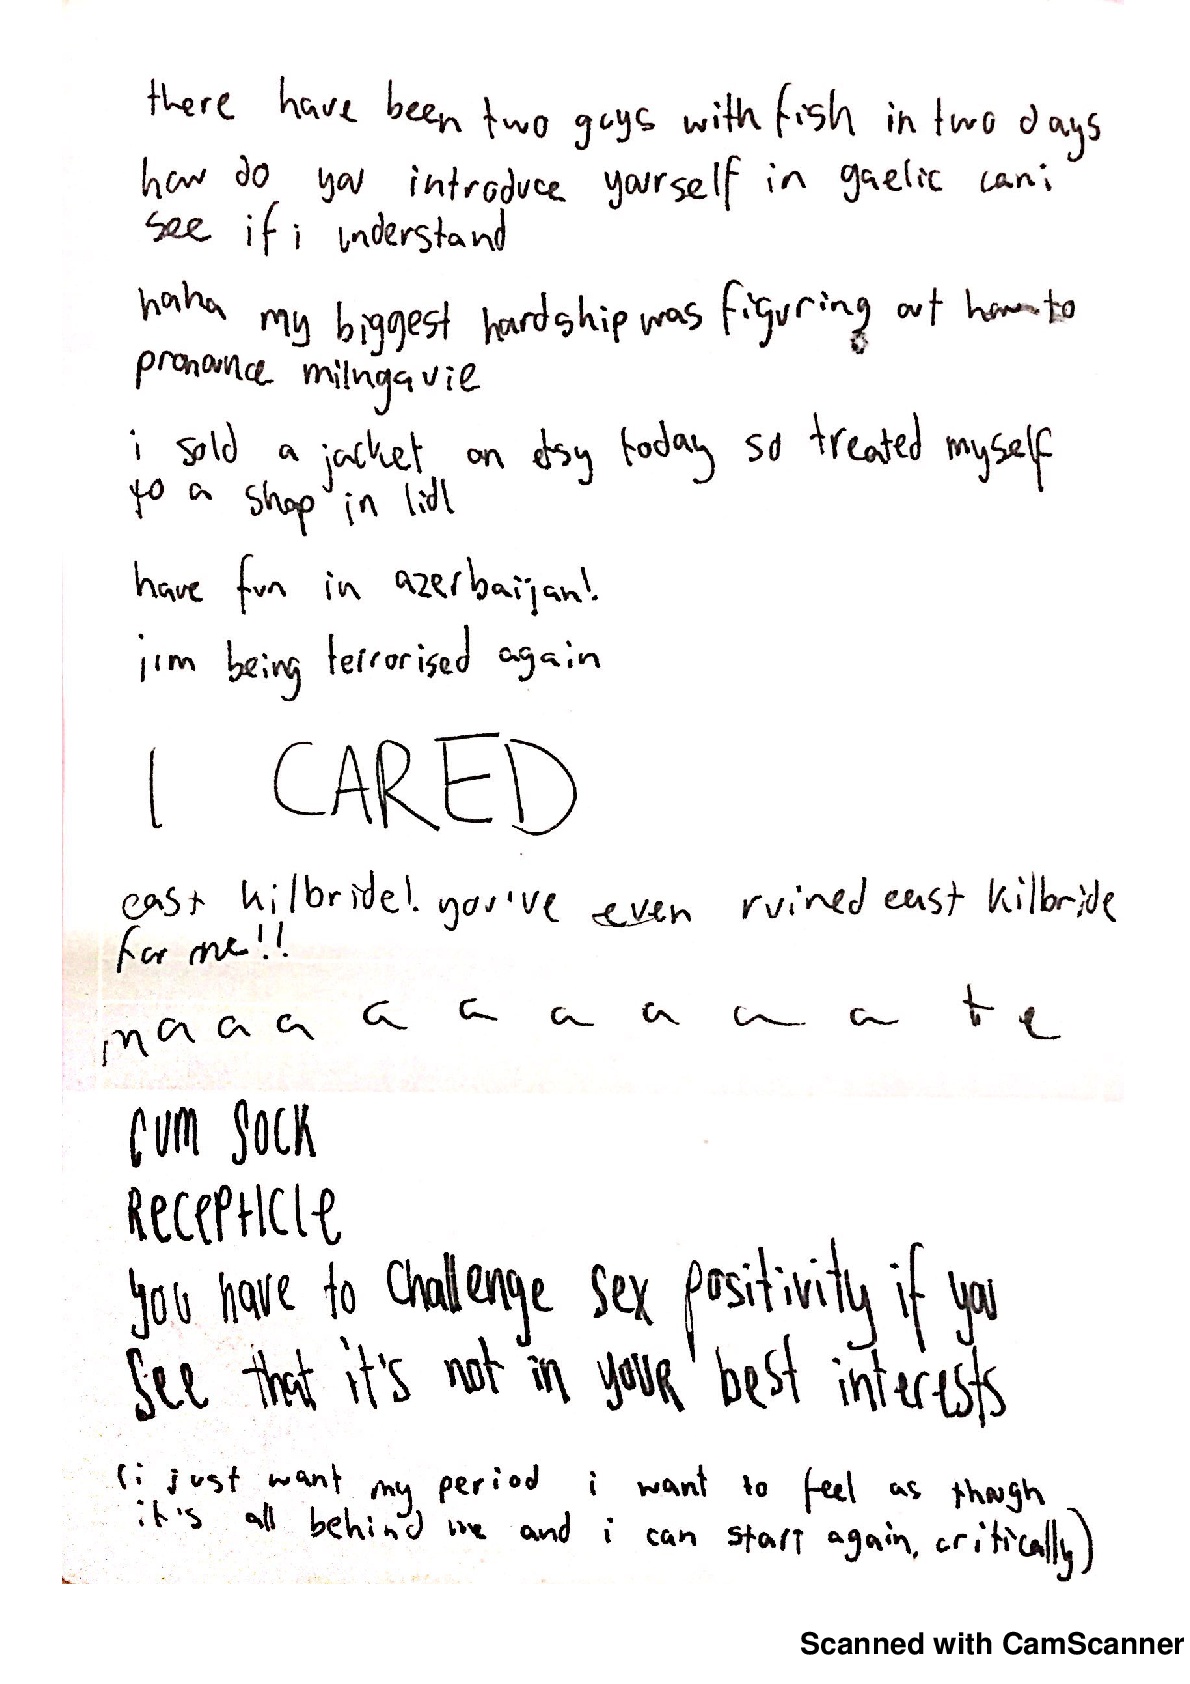 there have been two guys with fish in two days
how do you introduce yourself in gaelic can i
see if i understand
haha my biggest hardship was figuring out how to
pronounce milngavie
i sold a jacket on etsy today so treated myself
to a shop in lidl
have fun in azerbaijan!
jim being terrorised again
I CARED
east kilbride! you've even ruined east kilbride
for me!!
maaaaaaaaate
CUM SOCK
RECEPTICLE
you have to challenge sex positivity if you
see that it's not in your best interests
(i just want my period i want to feel as though
it's all behind me and i can start again, critically)
Scanned with CamScanner